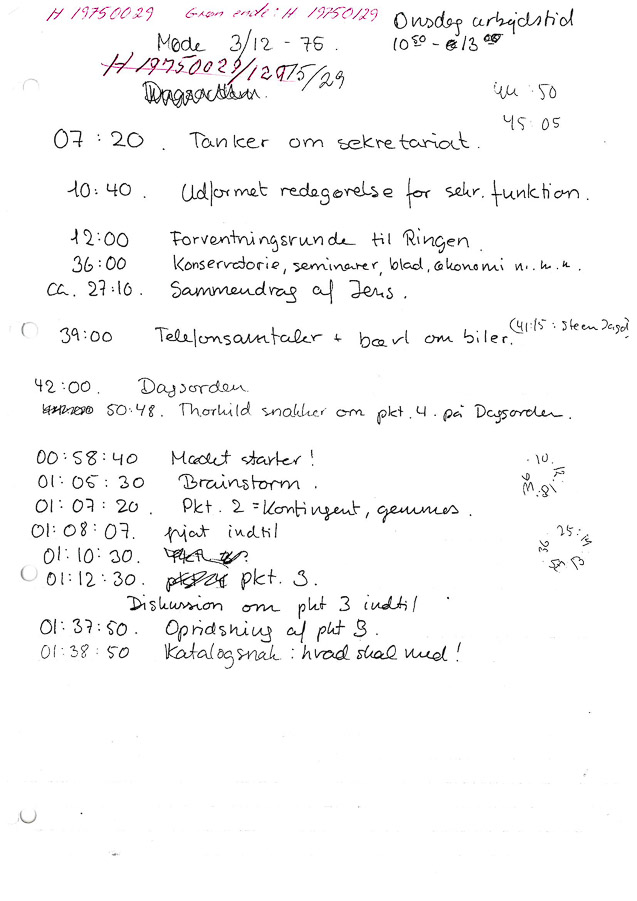 H 19750029 Grøn ende: H 19750129
Onsdag arbejdstid
10⁵⁰ - 13⁰⁰
Møde 3/12 - 75.
H 19750029/129 75/29
44:50
45:05
07:20. Tanker om sekretariat.
10:40. Udformet redegørelse for sekr. funktion.
12:00 Forventningsrunde til Ringen.
36:00 Konservatorie, seminarer, blad, økonomi m.m.m.
ca. 27:10. Sammendrag af Jens.
39:00 Telefonsamtaler + bævl om biler. (41:15: Steen
42:00. Dagsorden.
50:48. Thorhild snakker om pkt. 4. på Dagsorden.
00:58:40 Mødet starter!
01:05:30 Brainstorm.
01:07:20. Pkt. 2 = Kontingent, gemmes.
01:08:07. pjat indtil
01:10:30.
01:12:30. pkt. 3.
Diskussion om pkt 3 indtil
01:37:50. Opridsning af pkt 3.
01:38:50 Katalogsnak: hvad skal med!